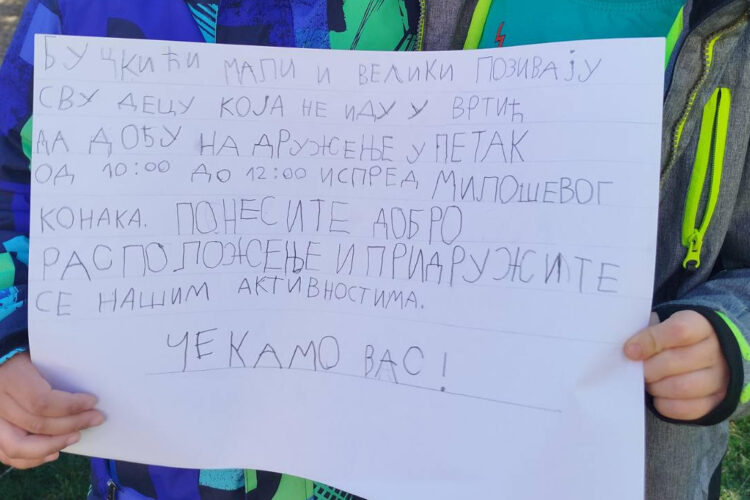 БУЦКИЋИ МАЛИ И ВЕЛИКИ ПОЗИВАЈУ
СВУ ДЕЦУ КОЈА НЕ ИДУ У ВРТИЋ
ДА ДОЂУ НА ДРУЖЕЊЕ У ПЕТАК
ОД 10:00 ДО 12:00 ИСПРЕД МИЛОШЕВОГ
КОНАКА. ПОНЕСИТЕ ДОБРО
РАСПОЛОЖЕЊЕ И ПРИДРУЖИТЕ
СЕ НАШИМ АКТИВНОСТИМА.
ЧЕКАМО ВАС!